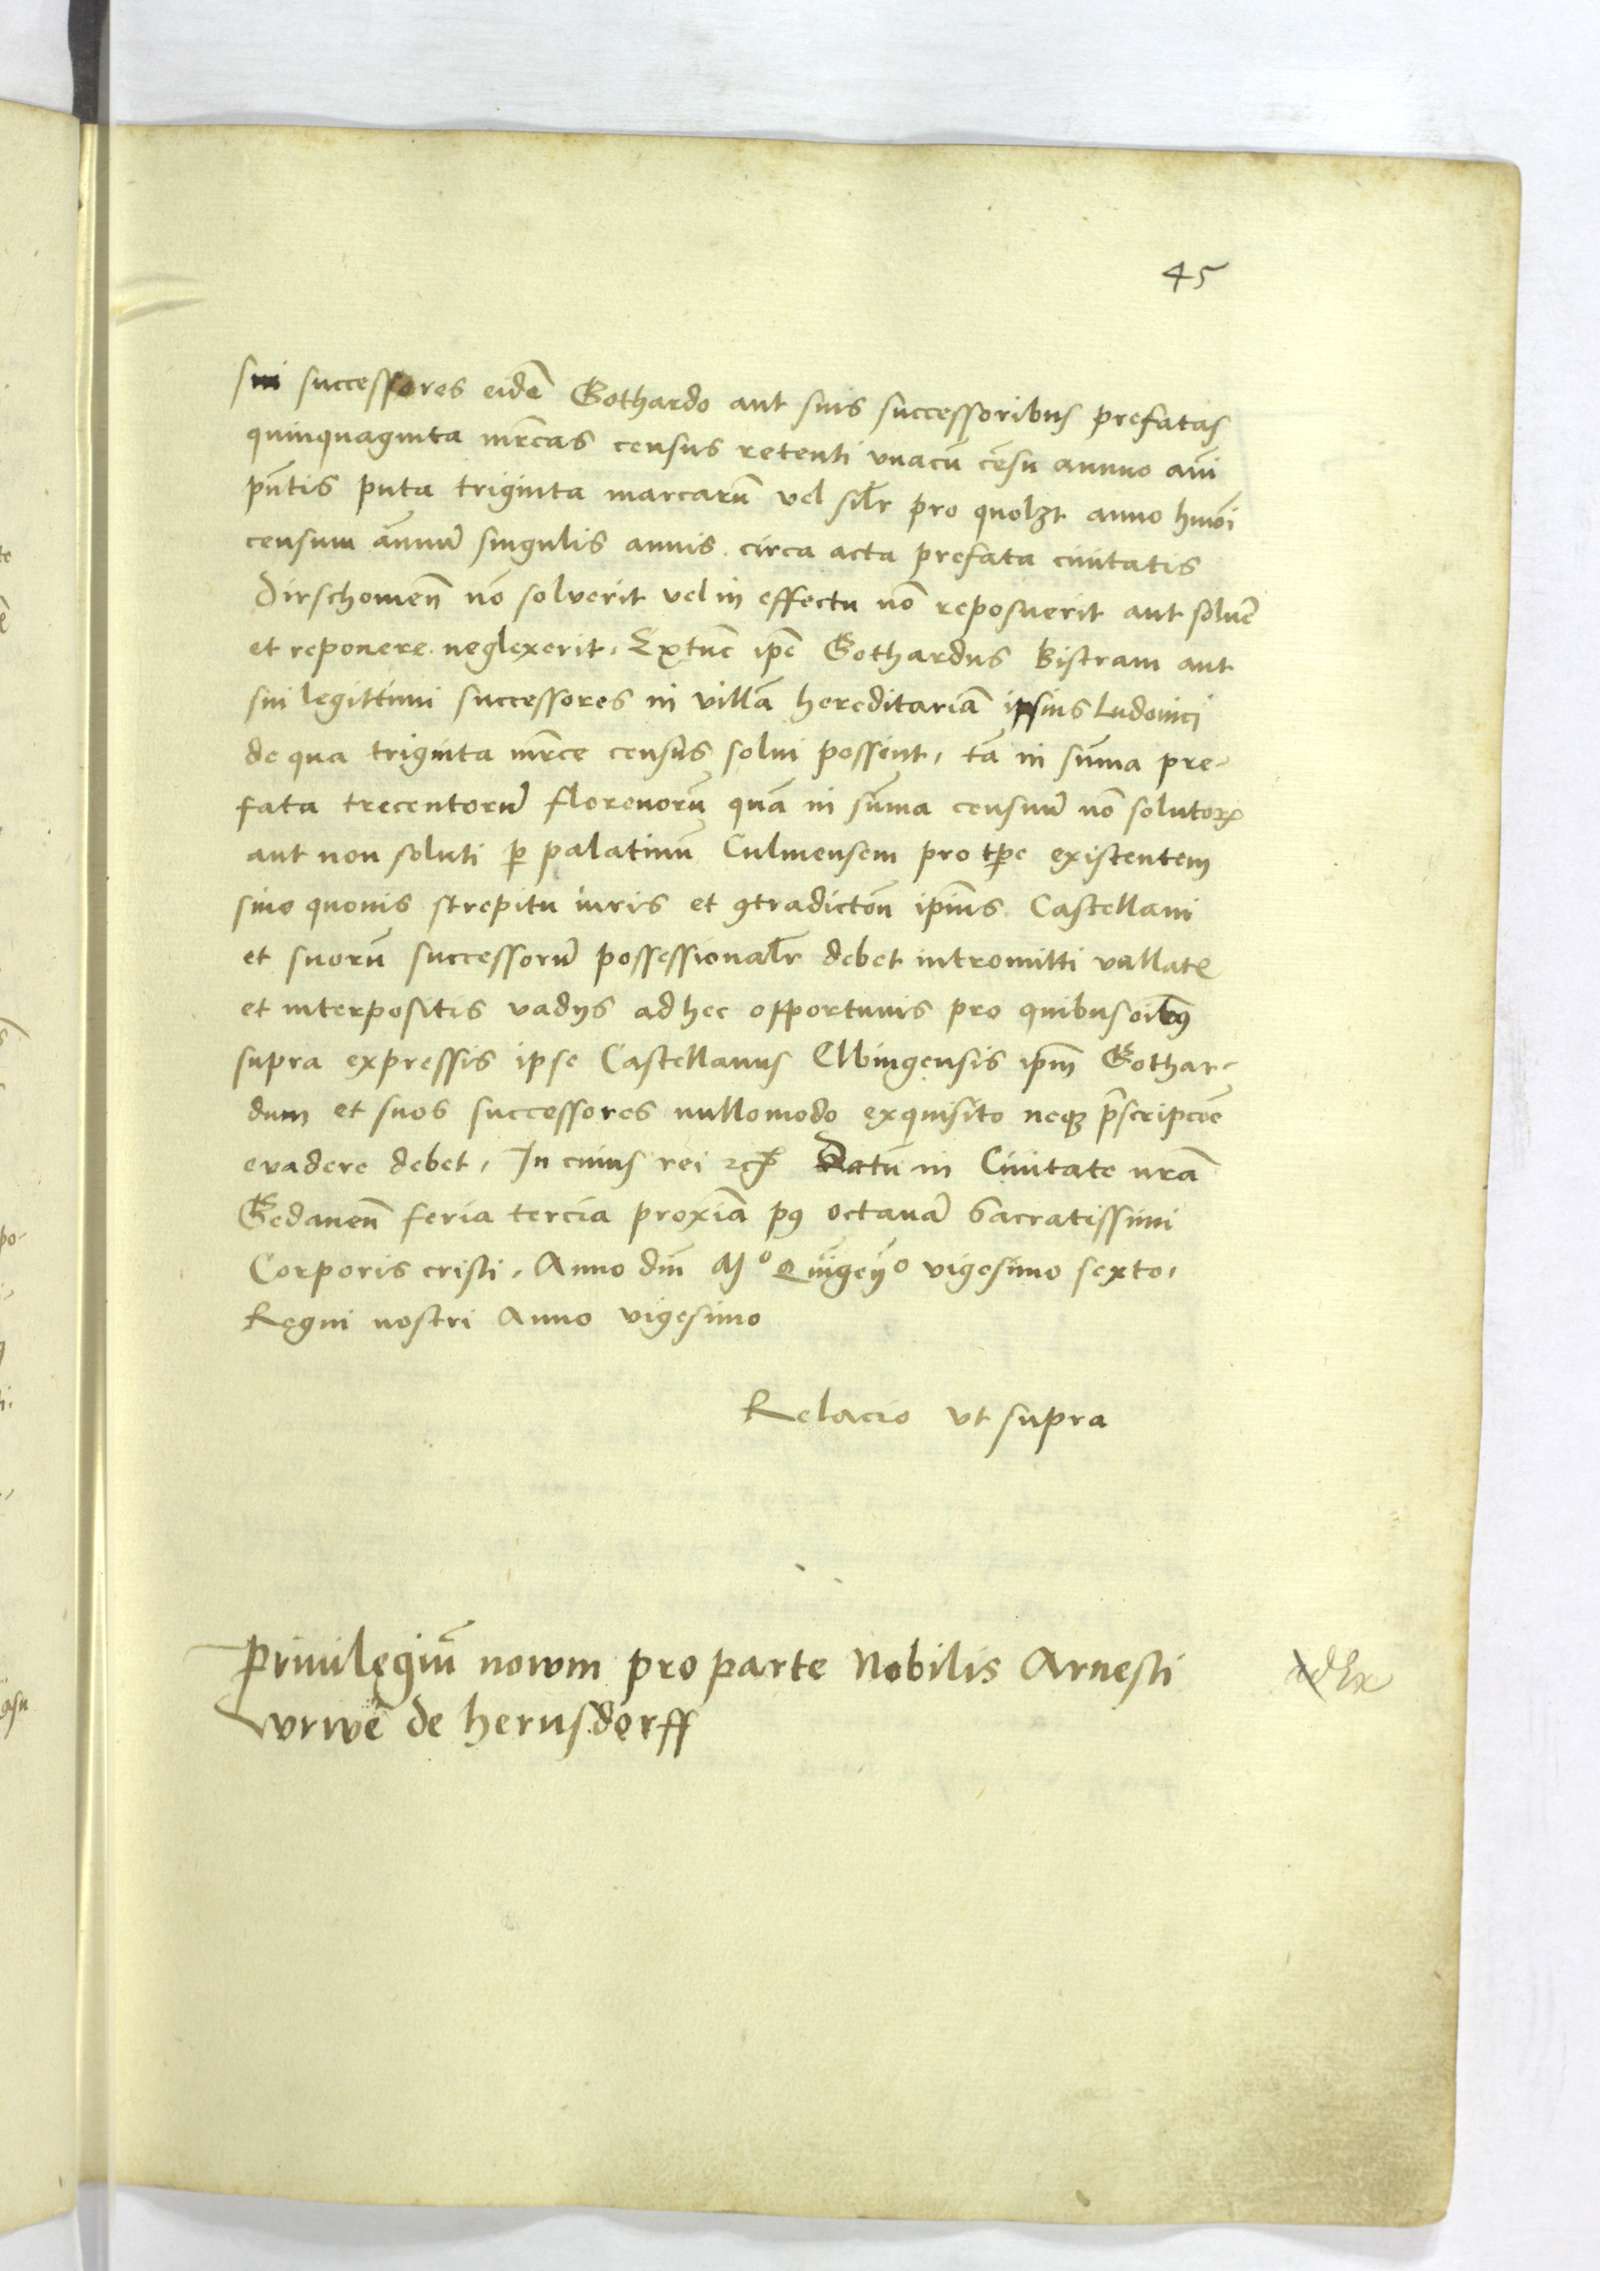 45
sui successores eidē Gothardo aut suis successoribus prefatas
quinquaginta mr̄cas census retenti vnacū cēsu annuo anī
pn̄tis puta triginta marcarū vel silr̄ pro quolꝫt anno hmōi
censum ānuū singulis annis circa acta prefata ciuitatis
Dirschouien̄ nō solverit vel in effectu nō reposuerit aut soluē
et reponere neglexerit, Extūc ip̄e Gothardus Bistram aut
sui legittimi successores in villā hereditariā ipsius Ludouici
de qua triginta mr̄ce census solui possint, tā in sūma pre-
fata trecentorū florenorū quā in sūma censuū nō solutoꝝ
aut non soluti ꝑ palatinū Culmensem pro tp̄e existentem
sine quouis strepitu iuris et ꝯtradictōn ip̄ius Castellani
et suorū successorū possessionalr̄ debet intromitti vallatę
et interpositis vadijs ad hec opportunis pro quibus oībꝯ
supra expressis ipse Castellanus Elbingensis ip̄m Gothar-
dum et suos successores nullomodo exquisito neqꝫ p̄scripcōe
evadere debet, In cuius rei ꝛcꝭ Datū in Ciuitate nr̄a
Gedanen̄ feria tercia proxiā pꝯ octauā Sacratissimi
Corporis cristi, Anno dn̄i Mº Quīgeñº vigesimo sexto,
Regni nostri Anno vigesimo
Relacio vt supra
Priuilegiū nouum pro parte Nobilis Arnesti
vrwē de hernsdorff